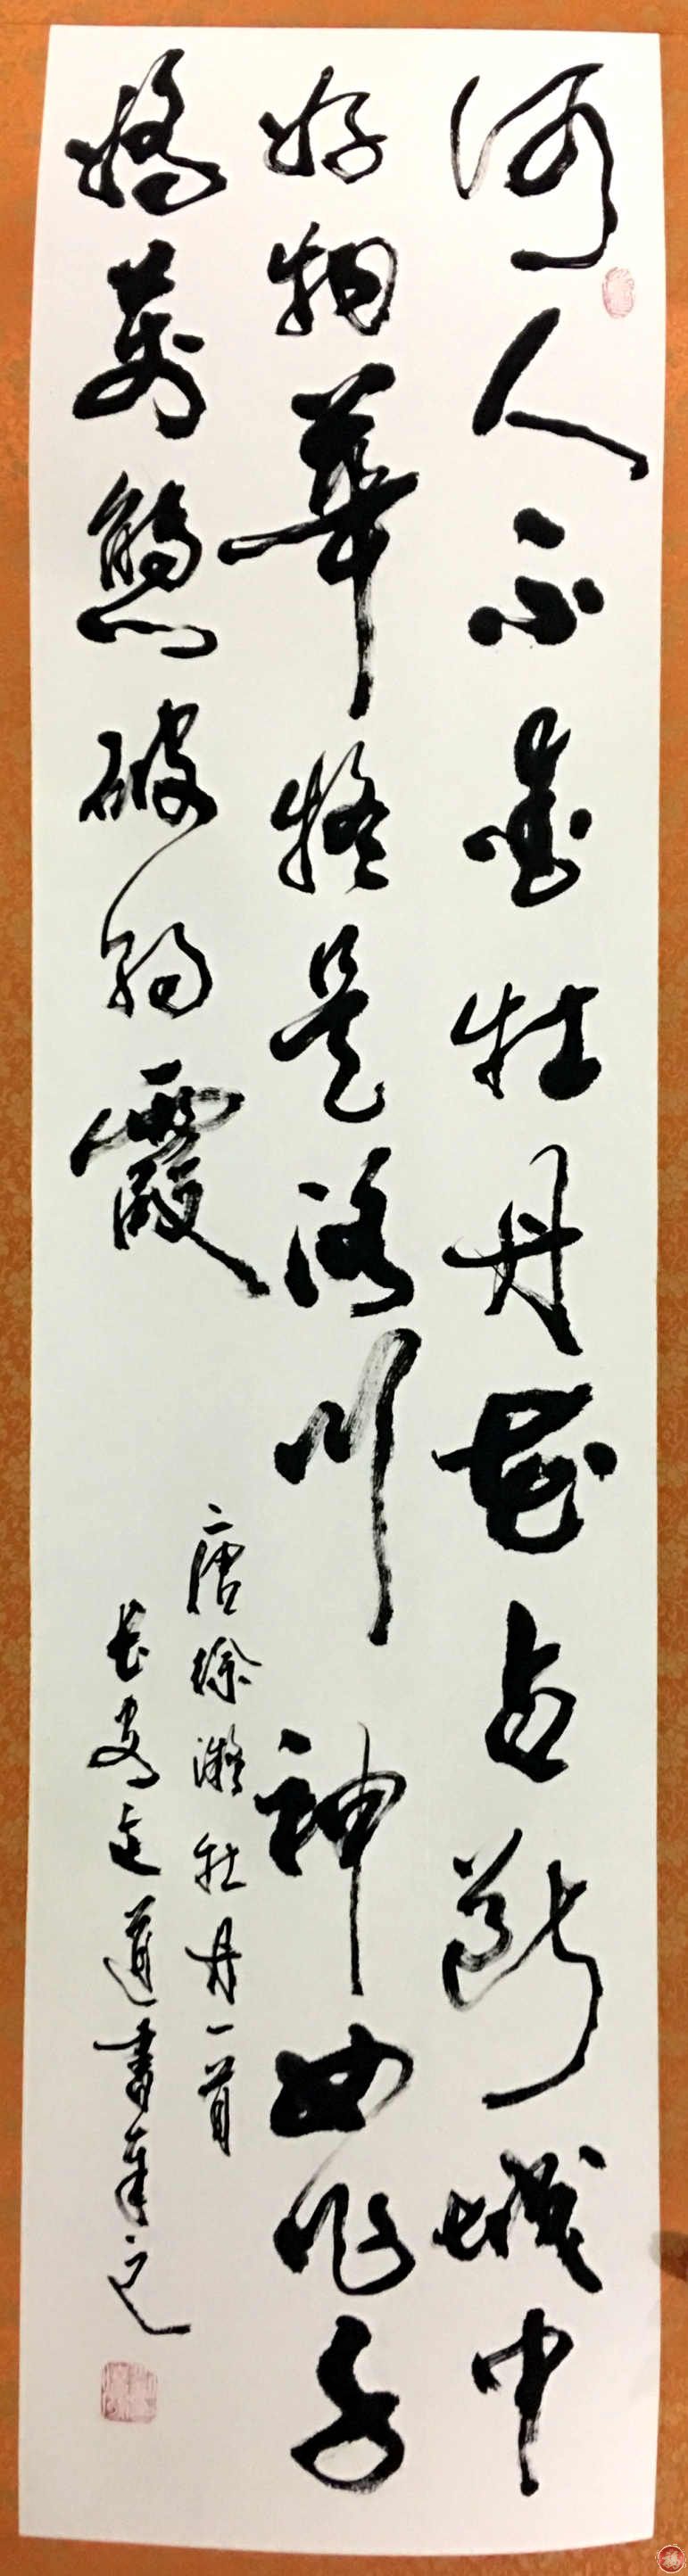 何人不愛牡丹花占斷城中
好物華疑是洛川神女作千
嬌萬態破朝霞
唐徐凝牡丹一首
長安